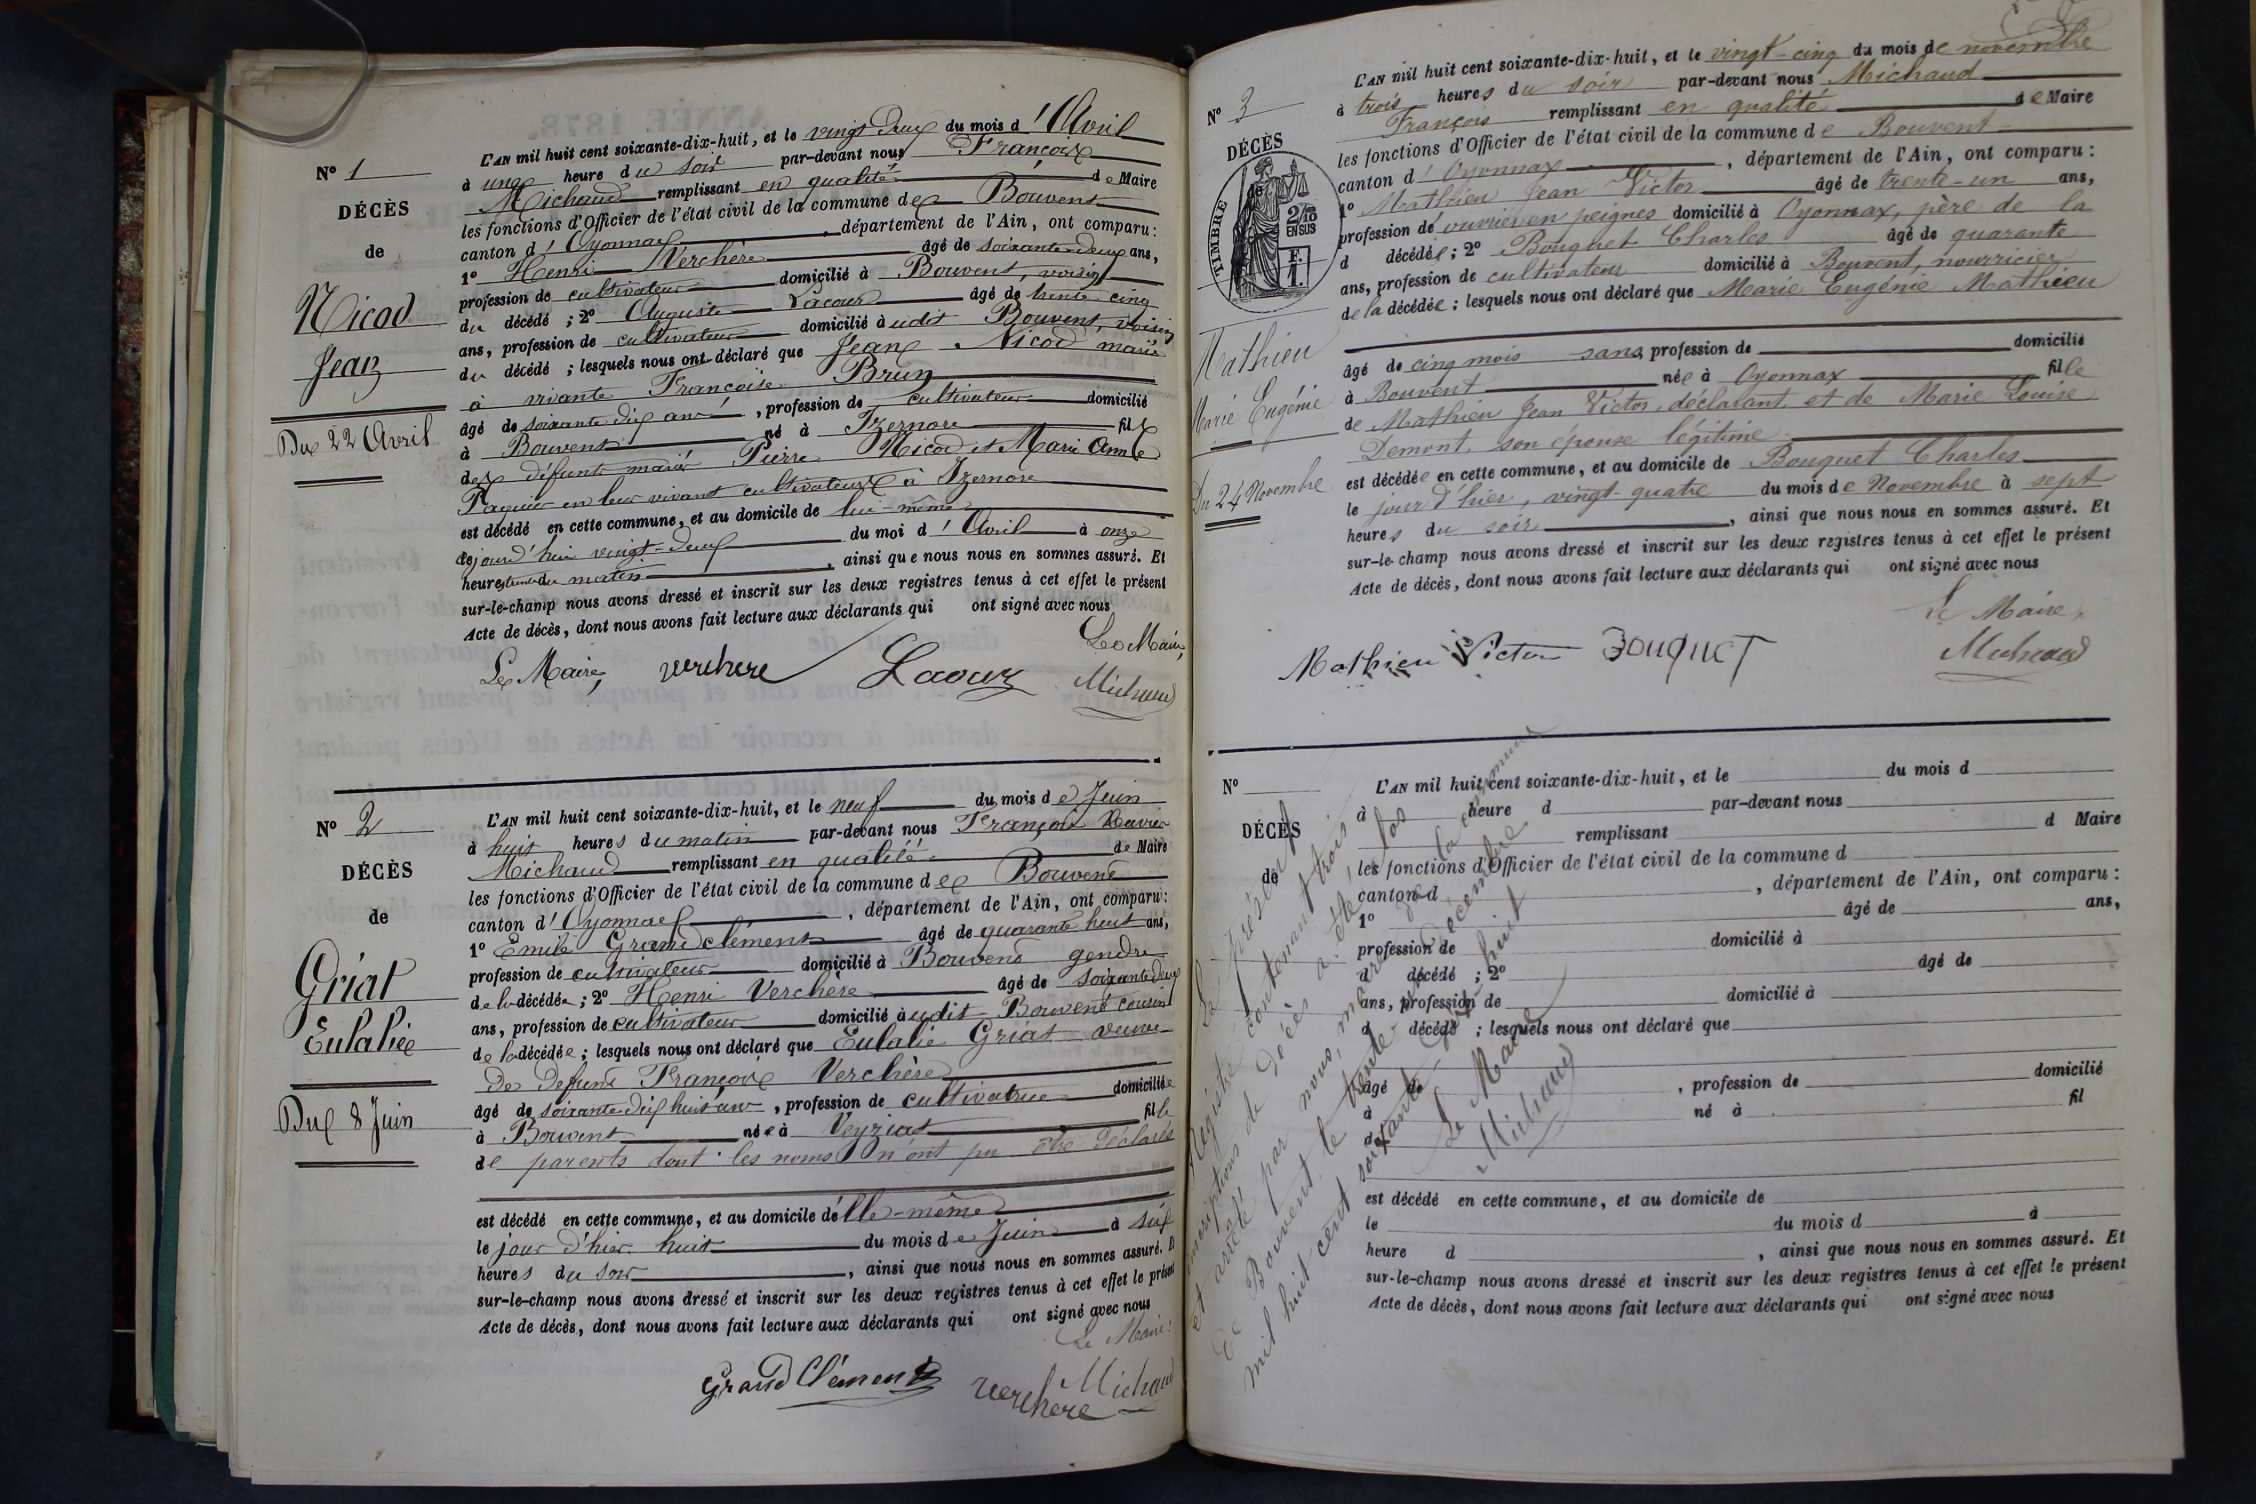 N° 1
DÉCÈS
de
Nicod
Jean
Du 22 Avril
L'AN mil huit cent soixante-dix-huit, et le vingt deux du mois d'Avril
à une heure du soir par-devant nous François
Michaud remplissant en qualité de Maire
les fonctions d'Officier de l'état civil de la commune de Bouvent
canton d'Oyonnax, département de l'Ain, ont comparu:
1° Henri Verchère âgé de soixante deux ans,
profession de cultivateur domicilié à Bouvent, voisin
du décédé ; 2° Auguste Lacour âgé de trente cinq
ans, profession de cultivateur domicilié à udit Bouvent, voisin
du décédé ; lesquels nous ont déclaré que Jean Nicod marié
à vivante Françoise Brun
âgé de soixante dix ans, profession de cultivateur domicilié
à Bouvent né à Izernore fil
de défunts mariés Pierre Nicod et Marie Anne
en leur vivant cultivateurs à Izernore
est décédé en cette commune, et au domicile de lui-même
cejourd'hui vingt-deux du moi d'Avril à onze
heures du matin, ainsi que nous nous en sommes assuré. Et
sur-le-champ nous avons dressé et inscrit sur les deux registres tenus à cet effet le présent
Acte de décès, dont nous avons fait lecture aux déclarants qui ont signé avec nous
Le Maire,
Le Maire, verchere Lacour Michaud
N° 2
DÉCÈS
de
Griat
Eulalie
Du 8 Juin
L'AN mil huit cent soixante-dix-huit, et le neuf du mois de Juin
à huit heures du matin par-devant nous François Xavier
Michaud remplissant en qualité de Maire
les fonctions d'Officier de l'état civil de la commune de Bouvent
canton d'Oyonnax, département de l'Ain, ont comparu:
1° Emile Grandclément âgé de quarante huit ans,
profession de cultivateur domicilié à Bouvent gendre
de la décédée ; 2° Henri Verchère âgé de soixante deux
ans, profession de cultivateur domicilié à udit Bouvent cousin
de la décédée ; lesquels nous ont déclaré que Eulalie Griat veuve
de defunt François Verchère
âgé de soixante dix huit ans, profession de cultivatrice domiciliée
à Bouvent née à Veyziat fille
de parents dont les noms n'ont pu être déclarés
est décédé en cette commune, et au domicile d'elle-même
le jour d'hier huit du mois de Juin à six
heures du soir, ainsi que nous nous en sommes assuré. Et
sur-le-champ nous avons dressé et inscrit sur les deux registres tenus à cet effet le présent
Acte de décès, dont nous avons fait lecture aux déclarants qui ont signé avec nous
Le Maire:
Grand Clément verchère Michaud
N° 3
DÉCÈS
de
TIMBRE
2/10 EN SUS
F. 1.
Mathieu
Marie Eugénie
Du 24 Novembre
L'AN mil huit cent soixante-dix-huit, et le vingt-cinq du mois de novembre
à trois heures du soir par-devant nous Michaud
François remplissant en qualité de Maire
les fonctions d'Officier de l'état civil de la commune de Bouvent
canton d'Oyonnax, département de l'Ain, ont comparu:
1° Mathieu Jean Victor âgé de trente-un ans,
profession d'ouvrier en peignes domicilié à Oyonnax, père de la
d décédée ; 2° Bouquet Charles âgé de quarante
ans, profession de cultivateur domicilié à Bouvent, nourricier
de la décédée ; lesquels nous ont déclaré que Marie Eugénie Mathieu
âgé de cinq mois sans profession de domicilié
à Bouvent née à Oyonnax fille
de Mathieu Jean Victor, déclarant et de Marie Louise
Demont, son épouse légitime
est décédée en cette commune, et au domicile de Bouquet Charles
le jour d'hier, vingt-quatre du mois de Novembre à sept
heures du soir, ainsi que nous nous en sommes assuré. Et
sur-le-champ nous avons dressé et inscrit sur les deux registres tenus à cet effet le présent
Acte de décès, dont nous avons fait lecture aux déclarants qui ont signé avec nous
Le Maire,
Mathieu Victor BOUQUET Michaud
N°
DÉCÈS
de
L'AN mil huit cent soixante-dix-huit, et le du mois d
à heure d par-devant nous
remplissant d Maire
les fonctions d'Officier de l'état civil de la commune d
canton d, département de l'Ain, ont comparu:
1° âgé de ans,
profession de domicilié à
d décédé ; 2° âgé de
ans, profession de domicilié à
d décédé ; lesquels nous ont déclaré que
âgé de, profession de domicilié
à né à fil
de
est décédé en cette commune, et au domicile de
le du mois d à
heure d, ainsi que nous nous en sommes assuré. Et
sur-le-champ nous avons dressé et inscrit sur les deux registres tenus à cet effet le présent
Acte de décès, dont nous avons fait lecture aux déclarants qui ont signé avec nous
Le présent
Registre contenant trois
inscriptions de décès a été clos
et arrêté par nous, maire de la commune
de Bouvent le trente-un décembre
mil huit cent soixante-dix-huit
Le Maire
Michaud